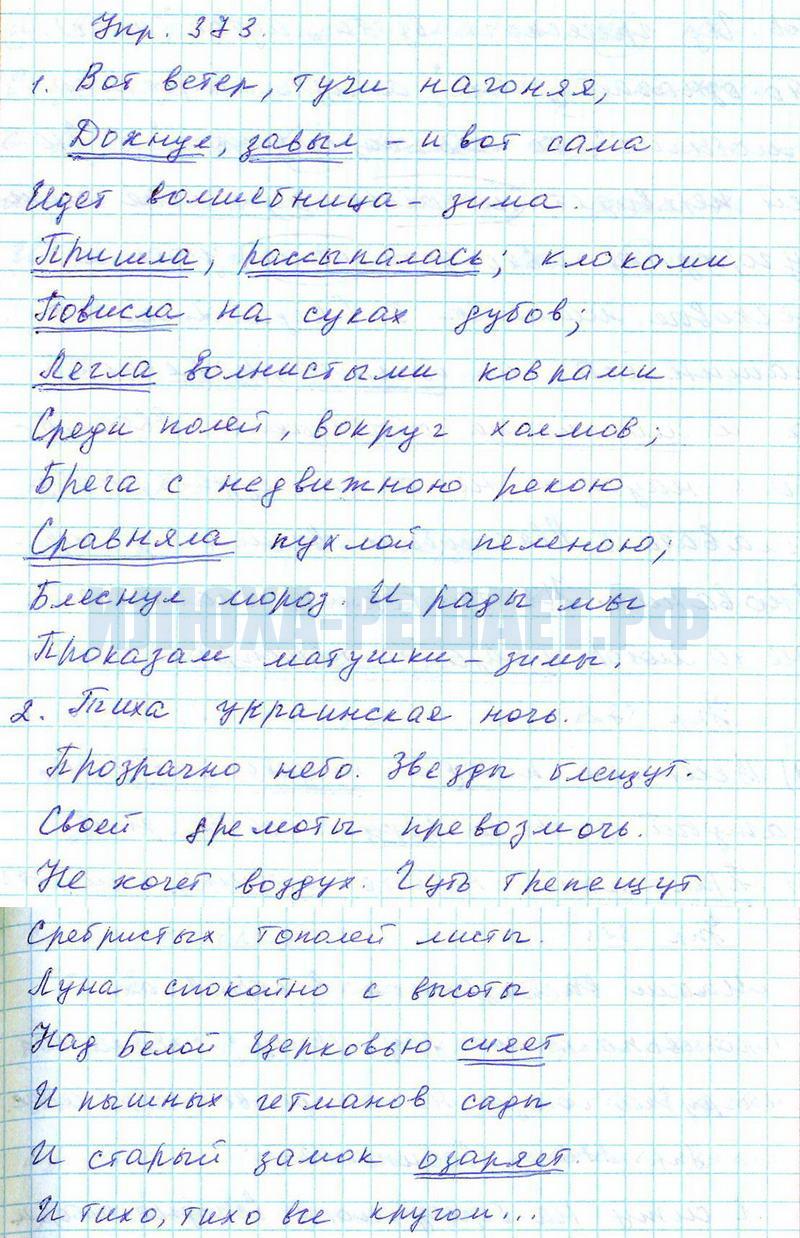 Упр. 373.
1. Вот ветер, тучи нагоняя,
Дохнул, завыл – и вот сама
Идет волшебница – зима.
Пришла, рассыпалась; клоками
Повисла на суках дубов;
Легла волнистыми коврами
Среди полей, вокруг холмов;
Брега с недвижною рекою
Сравняла пухлой пеленою;
Блеснул мороз. И рады мы
ИЛЮХА-РЕШАЕТ.РФ
Проказам матушки – зимы.
2. Тиха украинская ночь.
Прозрачно небо. Звезды блещут.
Своей дремоты превозмочь.
Не хочет воздух. Чуть трепещут
Сребристых тополей листы.
Луна спокойно с высоты
Над Белой Церковью сияет
И пышных гетманов сады
И старый замок озаряет.
И тихо, тихо все кругом...